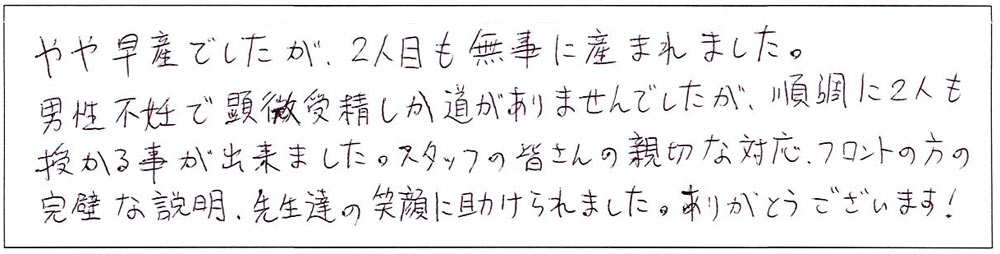 やや早産でしたが、2人目も無事に産まれました。
男性不妊で顕微受精しか道がありませんでしたが、順調に2人も
授かる事が出来ました。スタッフの皆さんの親切な対応、フロントの方の
完璧な説明、先生達の笑顔に助けられました。ありがとうございます!